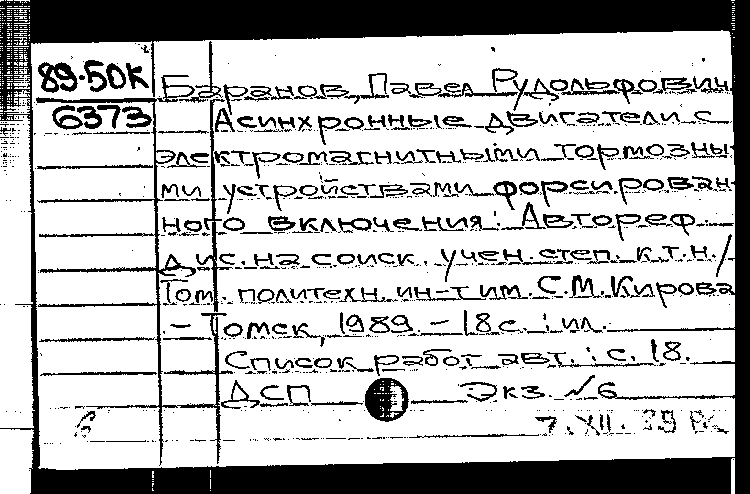 89-50К
6373
Баранов, Павел Рудольфович
Асинхронные двигатели с
электромагнитными тормозны-
ми устройствами форсирован-
ного включения: Автореф.
дис. на соиск. учен. степ. к.т.н./
Том. политехн. ин-т им. С.М. Кирова
.- Томск, 1989. - 18 с. : ил.
Список работ авт. : с. 18.
ДСП Экз. №6
6 7.XII.89